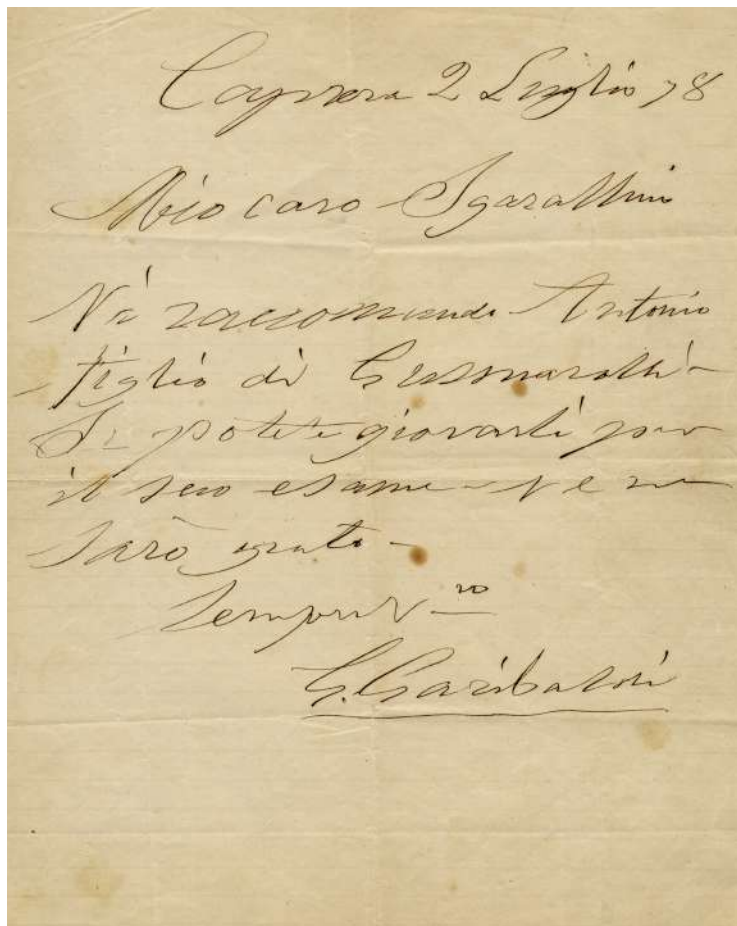 Caprera 2 Luglio 78
Mio caro Sgarallino
Vi raccomando Antonio
figlio di Gusmaroli -
Se potete giovarli per
il suo esame - Ve ne
sarò grato -
Sempre V.ro
G. Garibaldi